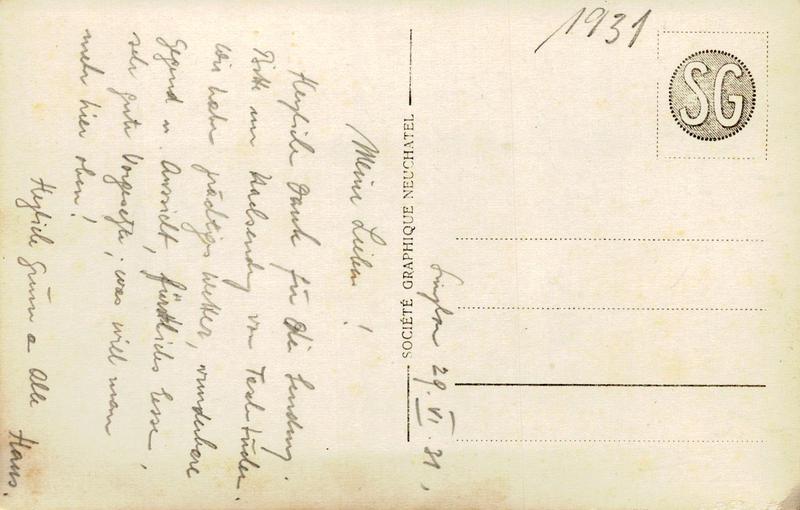 1931
SG
SOCIÉTÉ GRAPHIQUE NEUCHATEL
29.VI.31,
Meine Lieben!
Herzliche Dank für die Sendung.
Bitte um Nachsendung von
Wir habe prächtiges Wetter, wunderbare
Gegend u. Aussicht, fürstliches Esse,
sehr gute Vorgesetzte; was will man
mehr hier oben!
Herzliche Grüsse a Alle
Hans.